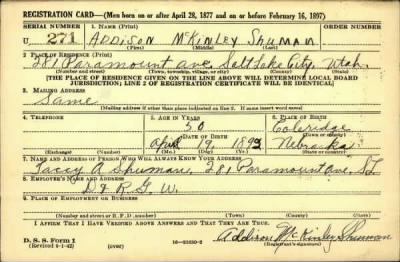 REGISTRATION CARD—(Men born on or after April 28, 1877 and on or before February 16, 1897)
SERIAL NUMBER 1. NAME (Print) ORDER NUMBER
U 271 ADDISON McKINLEY SHUMAN
(First) (Middle) (Last)
2. PLACE OF RESIDENCE (Print)
281 Paramount ave Salt Lake City, Utah.
(Number and street) (Town, township, village, or city) (County) (State)
[THE PLACE OF RESIDENCE GIVEN ON THE LINE ABOVE WILL DETERMINE LOCAL BOARD
JURISDICTION; LINE 2 OF REGISTRATION CERTIFICATE WILL BE IDENTICAL]
3. MAILING ADDRESS
Same
[Mailing address if other than place indicated on line 2. If same insert word same]
4. TELEPHONE 5. AGE IN YEARS 6. PLACE OF BIRTH
50 Coleridge
DATE OF BIRTH (Town or county)
April 19, 1892 Nebraska
(Exchange) (Number) (Mo.) (Day) (Yr.) (State or country)
7. NAME AND ADDRESS OF PERSON WHO WILL ALWAYS KNOW YOUR ADDRESS
Tacey A Shuman, 281 Paramount ave, S.L.
8. EMPLOYER'S NAME AND ADDRESS
D & R G W.
9. PLACE OF EMPLOYMENT OR BUSINESS
(Number and street or R. F. D. number) (Town) (County) (State)
I AFFIRM THAT I HAVE VERIFIED ABOVE ANSWERS AND THAT THEY ARE TRUE.
D. S. S. Form 1
(Revised 4-1-42) (over) Addison McKinley Shuman